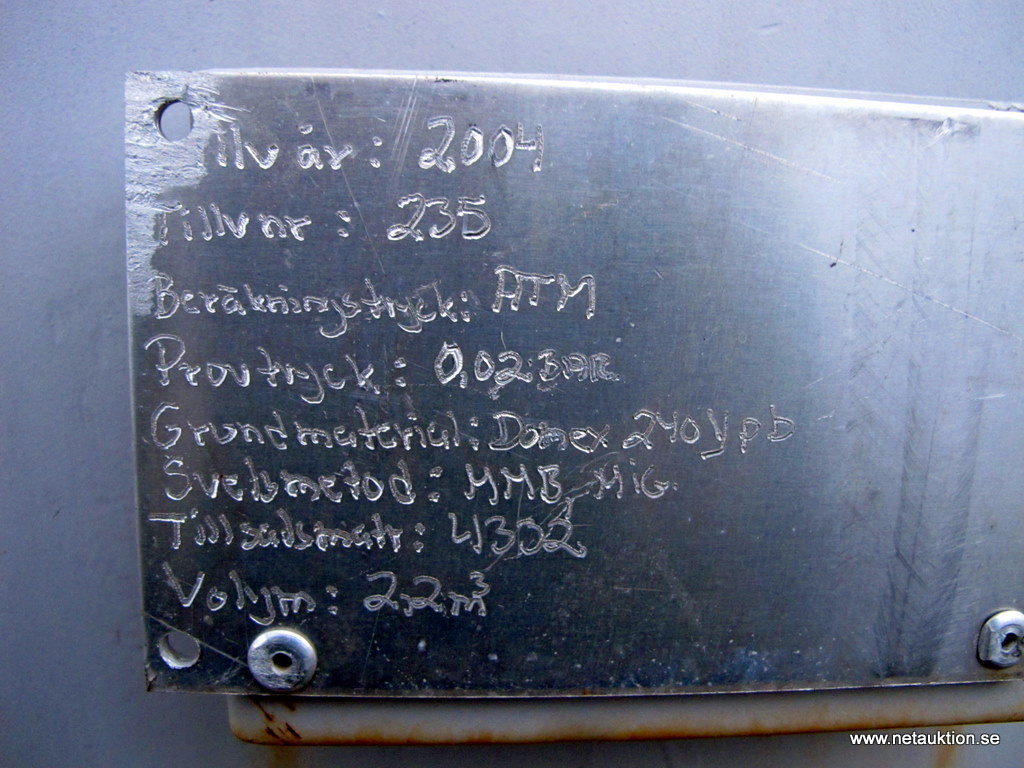 Tillv år: 2004
Tillvnr: 235
Beräkningstryck: ATM
Provtryck: 0,02 BAR
Grundmaterial: Domex 240 ypb
Svetsmetod: MMA, MiG.
Tillsatsmatr: 4302
Volym: 2,2m³
www.netauktion.se